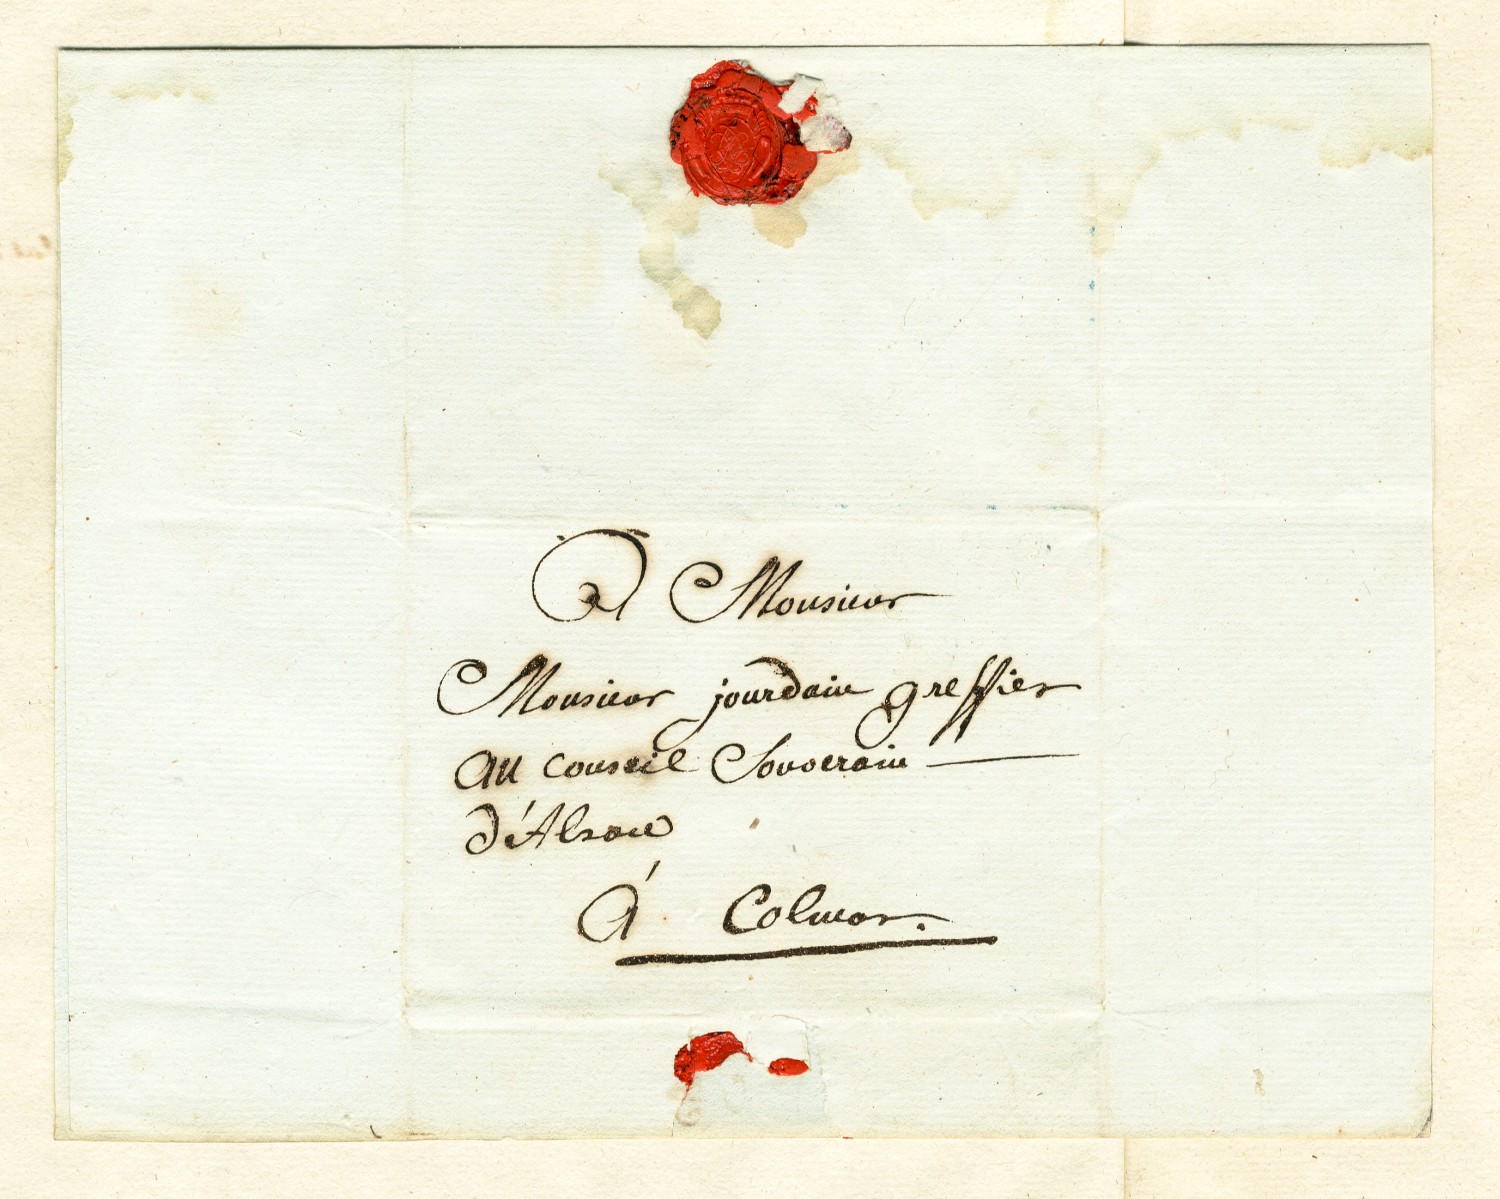 A Monsieur
Monsieur jourdain greffier
au conseil Souverain
d'Alsace
A Colmar.